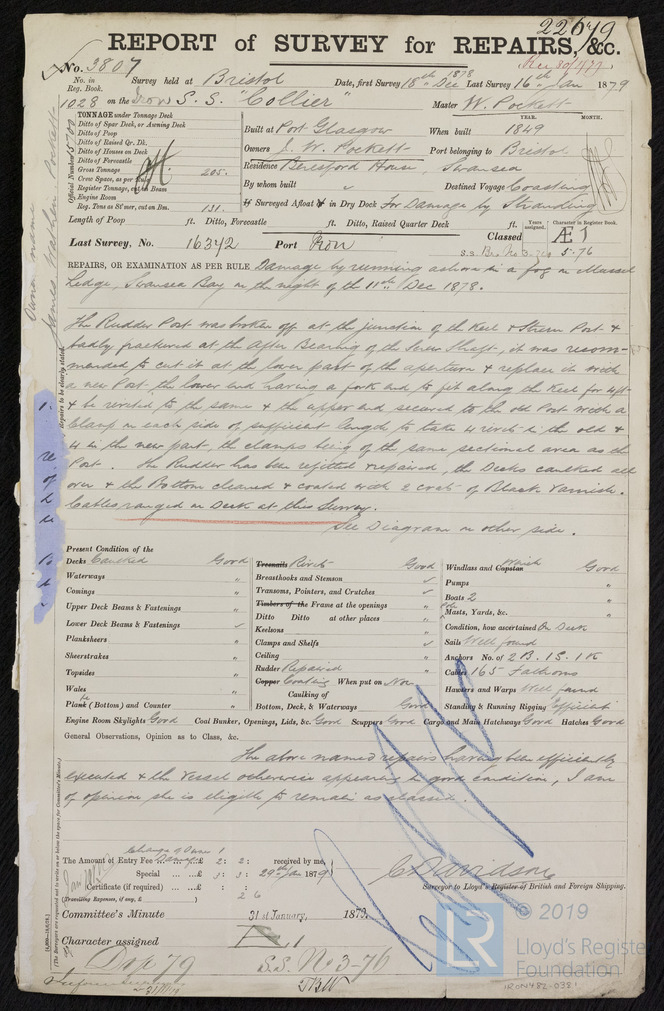 22679
REPORT of SURVEY for REPAIRS, &c.
No. 3807 Survey held at Bristol Date, first Survey 18th Dec 1878 Last Survey 16th Jan 1879
No. in Reg. Book.
1028 on the Iron S.S. "Collier" Master W. Pockett
TONNAGE under Tonnage Deck
Ditto of Spar Deck, or Awning Deck
Ditto of Poop
Ditto of Raised Qr. Dk.
Ditto of Houses on Deck
Ditto of Forecastle
Gross Tonnage 205.
Crew Space, as per Rule
Register Tonnage, cut on Beam
Engine Room
Reg. Tons as St'mer, cut on Bm. 131.
Built at Port Glasgow When built 1849
YEAR. MONTH.
Owners J. W. Pockett Port belonging to Bristol
Residence Beresford House, Swansea
By whom built " Destined Voyage Coasting
If Surveyed Afloat or in Dry Dock For Damage by Stranding
Length of Poop ft. Ditto, Forecastle ft. Ditto, Raised Quarter Deck ft.
Last Survey, No. 16342 Port Iron Classed Æ 1
Years assigned. Character in Register Book.
5.76
REPAIRS, OR EXAMINATION AS PER RULE Damage by running ashore in a fog on Mussel
Ledge, Swansea Bay on the night of the 11th Dec 1878.
Repairs to be clearly stated.
The Rudder Post was broken off at the junction of the Keel & Stern Post &
badly fractured at the After Bearing of the Screw Shaft, it was recom-
mended to cut it at the lower part of the aperture & replace it with
a new Post the lower end having a fork end to fit along the Keel for 4 ft
& be riveted to the same & the upper end secured to the old Post with a
Clamp on each side of sufficient length to take 4 rivets in the old &
4 in the new part, the clamps being of the same sectional area as the
Post. The Rudder has been refitted & repaired, the Decks caulked all
over & the Bottom cleaned & coated with 2 coats of Black Varnish.
Cables ranged on Deck at this Survey.
See Diagram on other side.
Present Condition of the
Decks Caulked Good
Waterways "
Comings "
Upper Deck Beams & Fastenings "
Lower Deck Beams & Fastenings
Planksheers "
Sheerstrakes "
Topsides "
Wales "
Plank (Bottom) and Counter "
Treenails Rivets Good
Breasthooks and Stemson
Transoms, Pointers, and Crutches
Timbers of the Frame at the openings "
Ditto Ditto at other places "
Keelsons "
Clamps and Shelfs
Ceiling "
Rudder Repaired "
Copper Coating When put on Now
Caulking of
Bottom, Deck, & Waterways Good
Windlass and Capstan Winch Good
Pumps "
Boats 2 "
Masts, Yards, &c. "
Condition, how ascertained On Deck
Sails Well found
Anchors No. of 2 B. 1 S. 1 K
Cables 165 Fathoms
Hawsers and Warps Well found
Standing & Running Rigging efficient
Engine Room Skylights Good Coal Bunker, Openings, Lids, &c. Good Scuppers Good Cargo and Main Hatchways Good Hatches Good
General Observations, Opinion as to Class, &c.
The above named repairs having been efficiently
executed & the Vessel otherwise appearing in good condition, I am
of opinion she is eligible to remain as classed.
Change of Owner
The Amount of Entry Fee Damage £ 2 : 2 : received by me,
Special £ 3 : 3 : 29th Jan 1879
Certificate (if required) 2 6
(Travelling Expenses, if any, £ )
C. Davidson
Surveyor to Lloyd's Register of British and Foreign Shipping.
Committee's Minute 31st January, 1879.
Character assigned A 1
Dap 79 S.S. No 3-76
© 2019
LR
Lloyd's Register
Foundation
IRON482-0381